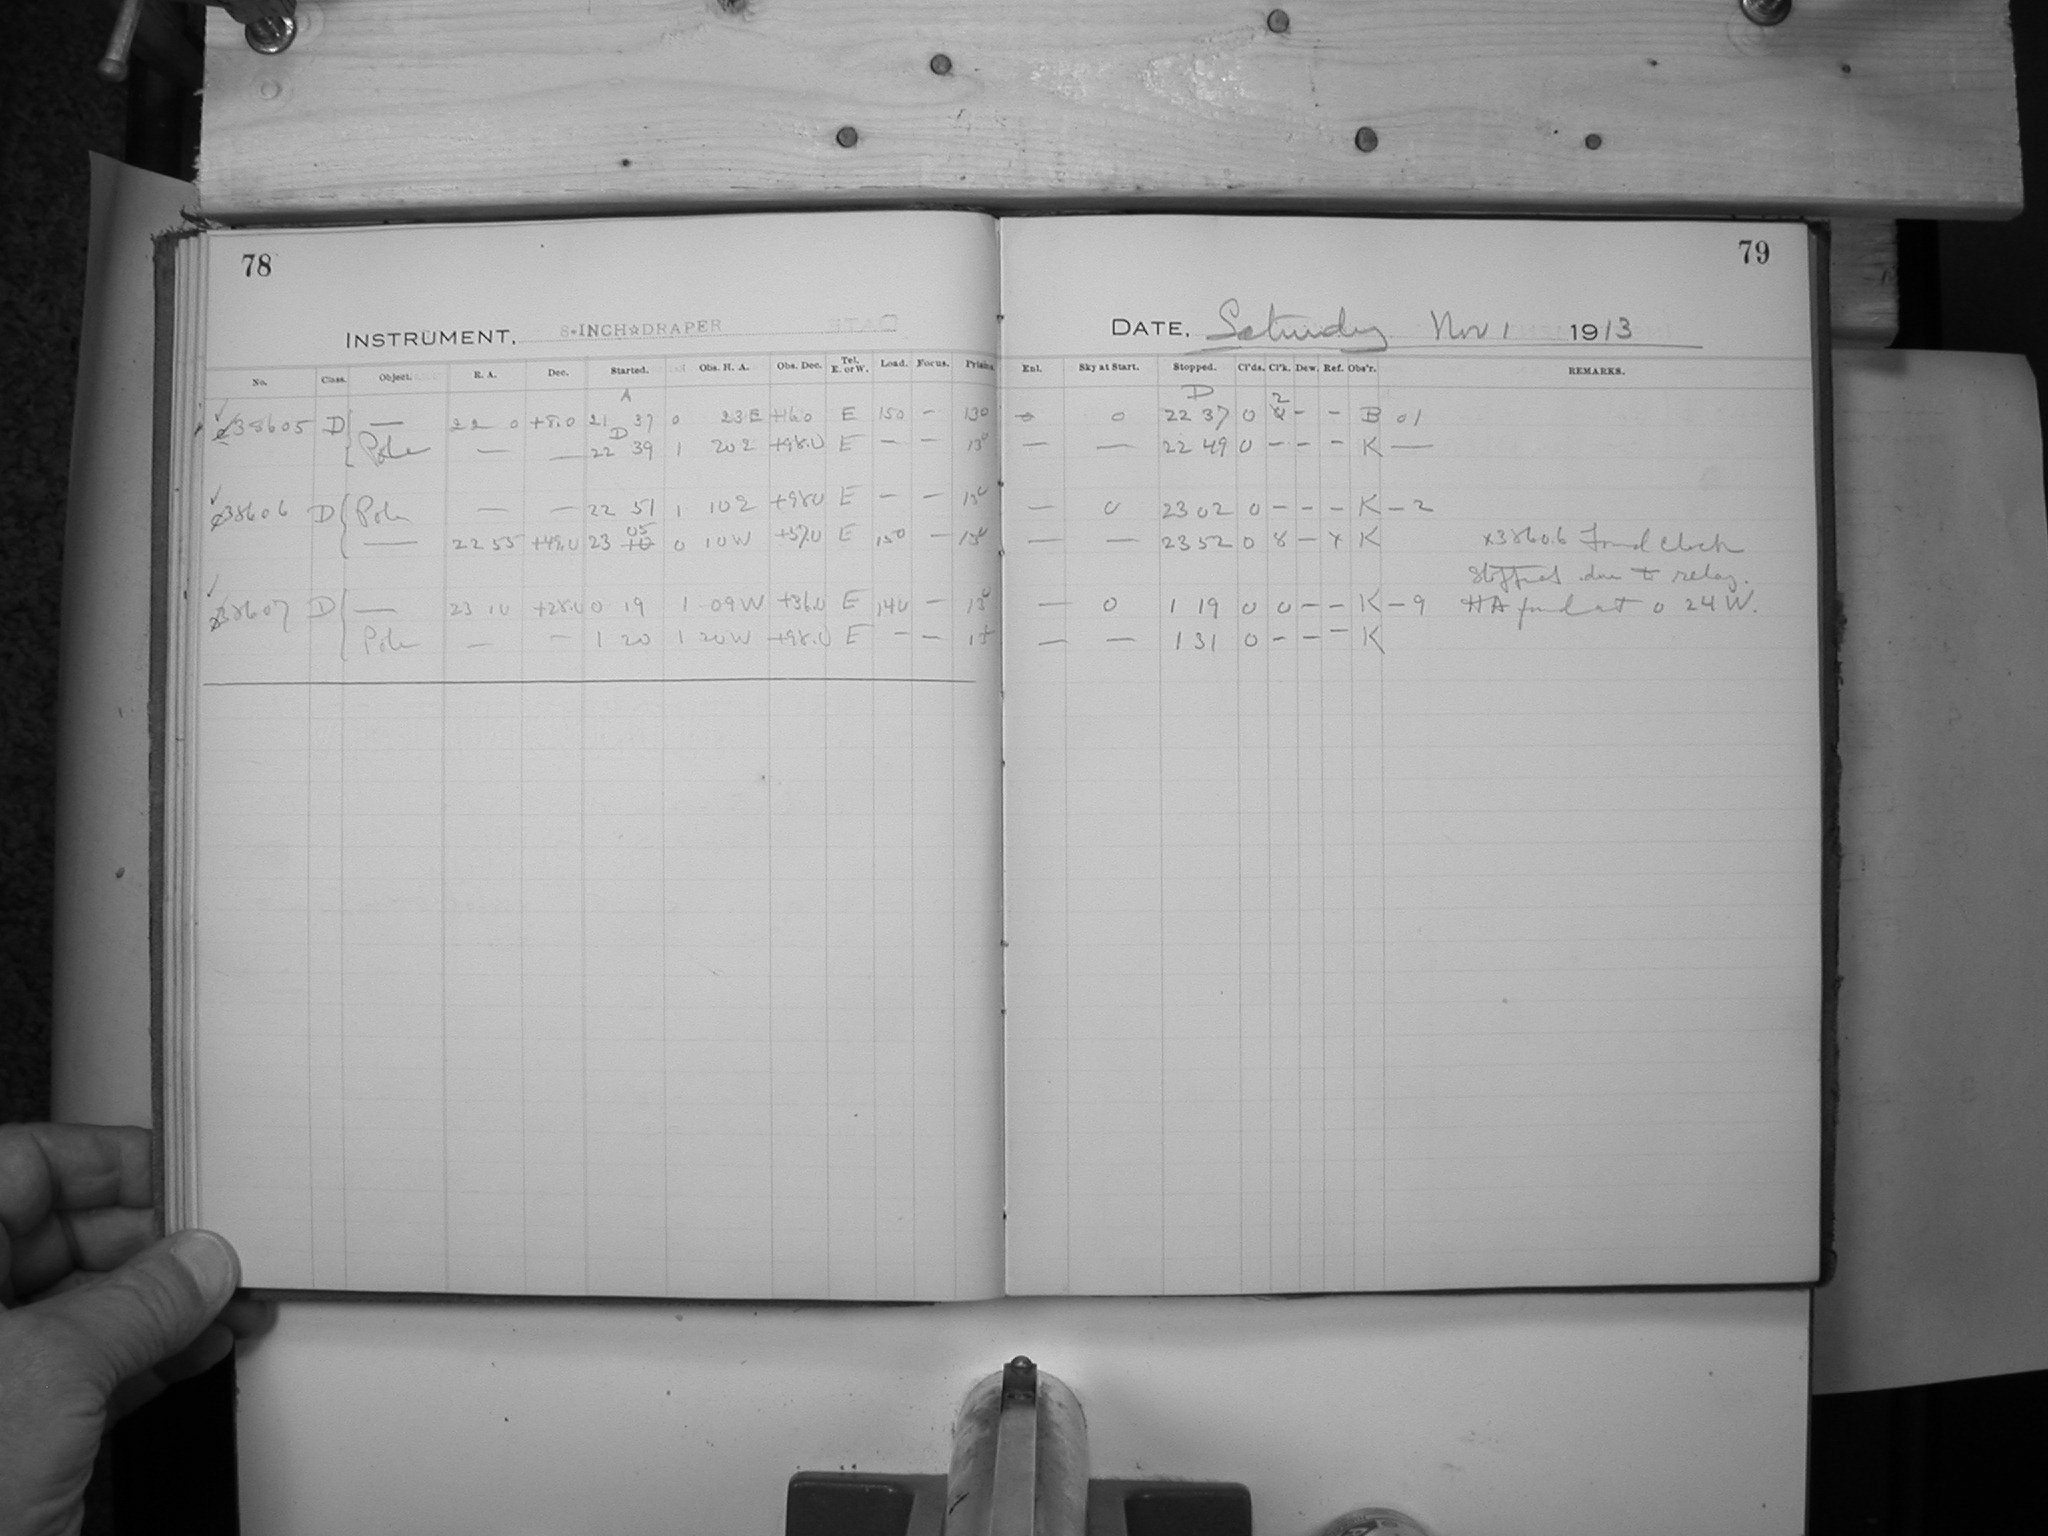 78
INSTRUMENT. 8-INCH☆DRAPER
No. Class. Object. R. A. Dec. Started. Obs. H. A. Obs. Dec. Tel. E. or W. Load. Focus. Prism.
A
38605 D — 22 0 +8.0 21 37 0 23 E +16.0 E 150 — 130
D
Pole — — 22 39 1 20 E +98.0 E — — 13°
38606 D Pole — — 22 51 1 10 E +98.0 E — — 13°
05
— 22 55 +49.0 23 10 0 10 W +57.0 E 150 — 13°
38607 D — 23 10 +28.0 0 19 1 09 W +36.0 E 140 — 13°
Pole — — 1 20 1 20 W +98.0 E — —
79
DATE. Saturday Nov 1 1913
Enl. Sky at Start. Stopped. Cl'ds. Cl'k. Dew. Ref. Obs'r. REMARKS.
D 2
0 22 37 0 4 — — B 01
— — 22 49 0 — — — K —
— 0 23 02 0 — — — K — 2
— — 23 52 0 8 — x K x38606 Found clock
stopped due to relay.
— 0 1 19 0 0 — — K — 9 HA found at 0 24 W.
— — 1 31 0 — — — K